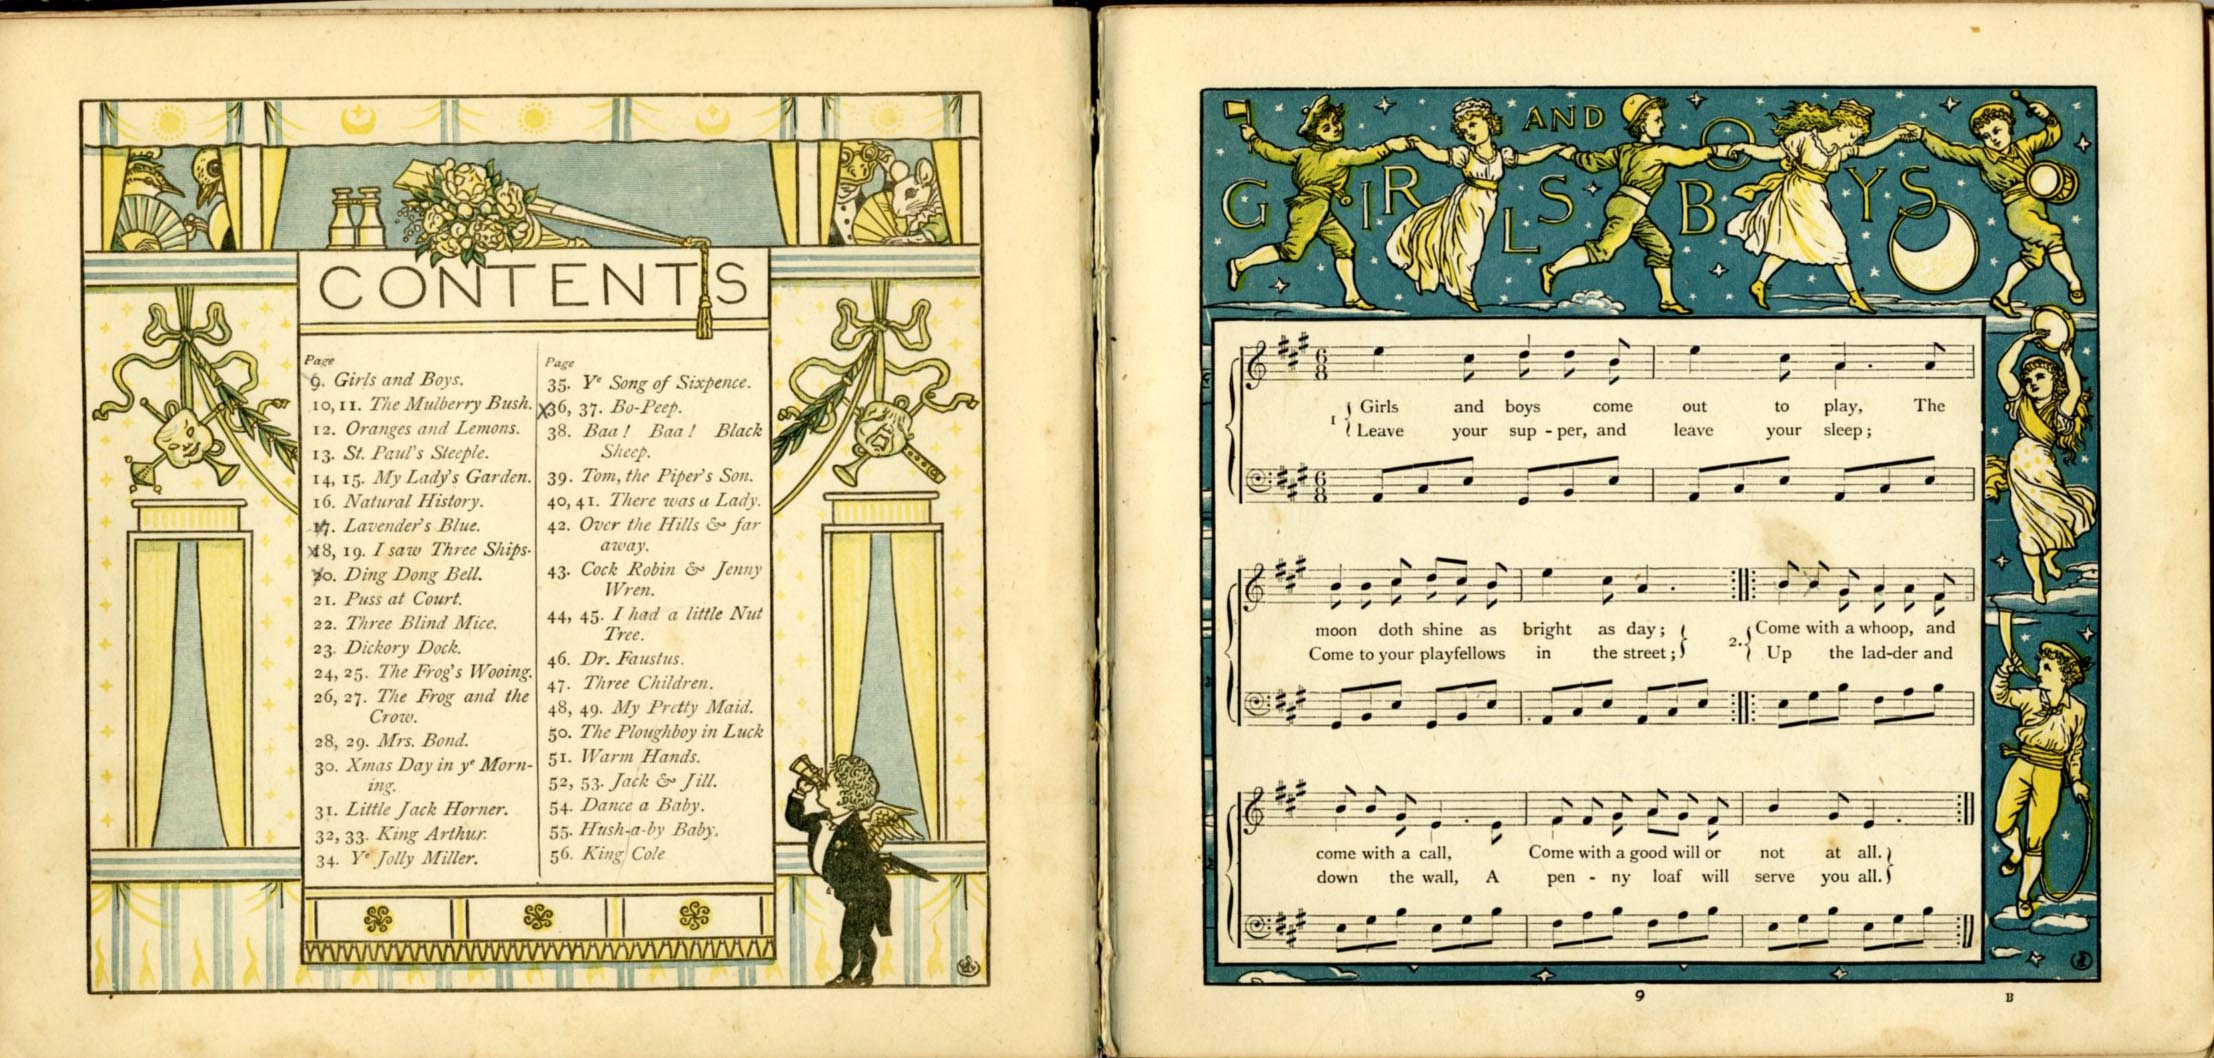 CONTENTS
Page
9. Girls and Boys.
10, 11. The Mulberry Bush.
12. Oranges and Lemons.
13. St. Paul's Steeple.
14, 15. My Lady's Garden.
16. Natural History.
17. Lavender's Blue.
18, 19. I saw Three Ships.
20. Ding Dong Bell.
21. Puss at Court.
22. Three Blind Mice.
23. Dickory Dock.
24, 25. The Frog's Wooing.
26, 27. The Frog and the
Crow.
28, 29. Mrs. Bond.
30. Xmas Day in ye Morn-
ing.
31. Little Jack Horner.
32, 33. King Arthur.
34. Ye Jolly Miller.
Page
35. Ye Song of Sixpence.
36, 37. Bo-Peep.
38. Baa! Baa! Black
Sheep.
39. Tom, the Piper's Son.
40, 41. There was a Lady.
42. Over the Hills & far
away.
43. Cock Robin & Jenny
Wren.
44, 45. I had a little Nut
Tree.
46. Dr. Faustus.
47. Three Children.
48, 49. My Pretty Maid.
50. The Ploughboy in Luck
51. Warm Hands.
52, 53. Jack & Jill.
54. Dance a Baby.
55. Hush-a-by Baby.
56. King Cole
GIRLS AND BOYS
6 8
1 { Girls and boys come out to play, The
{ Leave your sup - per, and leave your sleep;
6 8
moon doth shine as bright as day; } 2. { Come with a whoop, and
Come to your playfellows in the street; } { Up the lad-der and
come with a call, Come with a good will or not at all. }
down the wall, A pen - ny loaf will serve you all. }
9
B